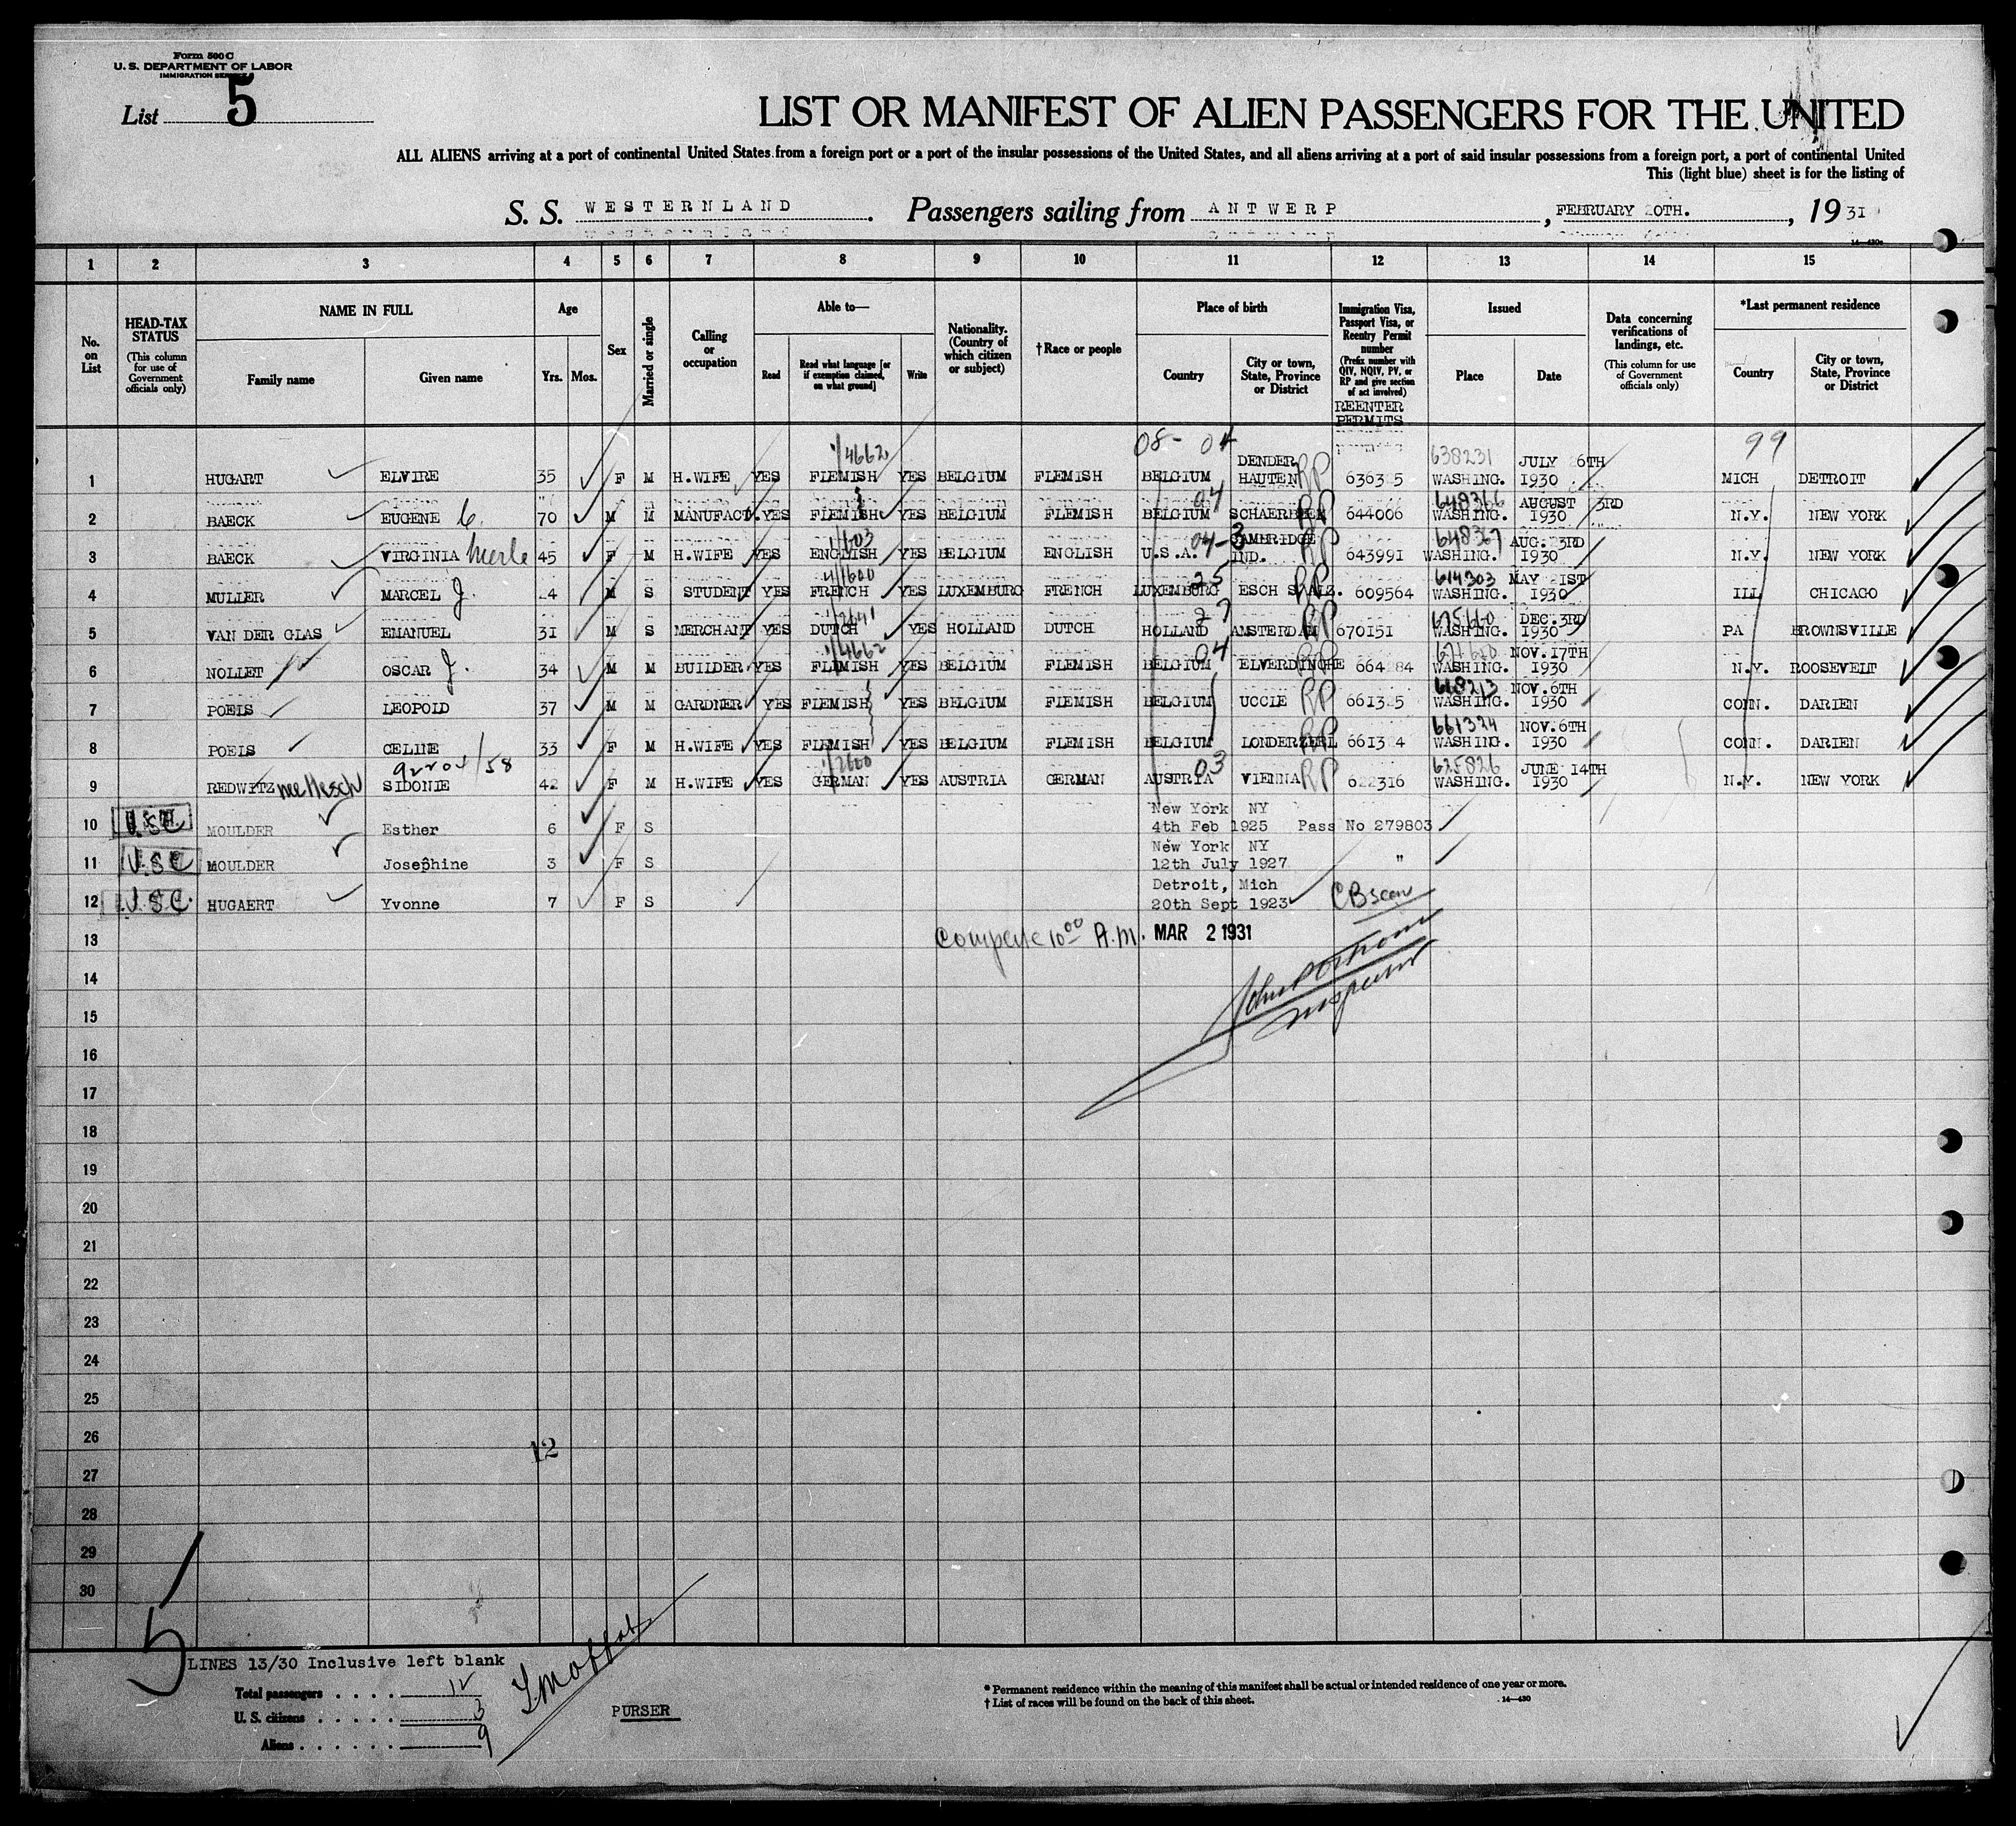 Form 500 C
U. S. DEPARTMENT OF LABOR
IMMIGRATION SERVICE
List 5
LIST OR MANIFEST OF ALIEN PASSENGERS FOR THE UNITED
ALL ALIENS arriving at a port of continental United States from a foreign port or a port of the insular possessions of the United States, and all aliens arriving at a port of said insular possessions from a foreign port, a port of continental United
This (light blue) sheet is for the listing of
S. S. WESTERNLAND. Passengers sailing from ANTWERP, FEBRUARY 20TH., 1931
1 2 3 4 5 6 7 8 9 10 11 12 13 14 15
No. on List
HEAD-TAX STATUS (This column for use of Government officials only)
NAME IN FULL Family name Given name
Age Yrs. Mos.
Sex
Married or single
Calling or occupation
Able to— Read Read what language [or if exemption claimed, on what ground] Write
Nationality. (Country of which citizen or subject)
†Race or people
Place of birth Country City or town, State, Province or District
Immigration Visa, Passport Visa, or Reentry Permit number (Prefix number with QIV, NQIV, PV, or RP and give section of act involved)
REENTER PERMITS
Issued Place Date
Data concerning verifications of landings, etc. (This column for use of Government officials only)
*Last permanent residence Country City or town, State, Province or District
08- 04 99
1 HUGART ELVIRE 35 F M H.WIFE YES FLEMISH 1/4662 YES BELGIUM FLEMISH BELGIUM DENDER HAUTEN RP 636325 638231 WASHING. JULY 26TH 1930 MICH DETROIT
2 BAECK EUGENE C. 70 M M MANUFACT. YES FLEMISH YES BELGIUM FLEMISH BELGIUM 04 SCHAERBEEK RP 644006 648366 WASHING. AUGUST 23RD 1930 N.Y. NEW YORK
3 BAECK VIRGINIA Merle 45 F M H.WIFE YES ENGLISH YES BELGIUM ENGLISH U.S.A. 04-3 CAMBRIDGE IND. RP 643991 648367 WASHING. AUG. 23RD 1930 N.Y. NEW YORK
4 MULLER MARCEL J. M S STUDENT YES FRENCH 1/1600 YES LUXEMBURG FRENCH LUXEMBURG 25 ESCH S/ALZ. RP 609564 614303 WASHING. MAY 21ST 1930 ILL CHICAGO
5 VAN DER GLAS EMANUEL 31 M S MERCHANT YES DUTCH YES HOLLAND DUTCH HOLLAND 27 AMSTERDAM RP 670151 675660 WASHING. DEC. 3RD 1930 PA BROWNSVILLE
6 NOLLET OSCAR J. 34 M M BUILDER YES FLEMISH 1/4662 YES BELGIUM FLEMISH BELGIUM 04 ELVERDINGHE RP 664284 WASHING. NOV. 17TH 1930 N.Y. ROOSEVELT
7 POEIS LEOPOLD 37 M M GARDNER YES FLEMISH YES BELGIUM FLEMISH BELGIUM UCCLE RP 661325 668213 WASHING. NOV. 6TH 1930 CONN. DARIEN
8 POEIS CELINE 33 F M H.WIFE YES FLEMISH YES BELGIUM FLEMISH BELGIUM LONDERZEEL RP 661324 661324 WASHING. NOV. 6TH 1930 CONN. DARIEN
9 REDWITZ SIDONIE 42 F M H.WIFE YES GERMAN 1/2600 YES AUSTRIA GERMAN AUSTRIA 03 VIENNA RP 622316 625826 WASHING. JUNE 14TH 1930 N.Y. NEW YORK
10 USC MOULDER Esther 6 F S New York NY 4th Feb 1925 Pass No 279803
11 USC MOULDER Josephine 3 F S New York NY 12th July 1927 "
12 USC HUGAERT Yvonne 7 F S Detroit, Mich 20th Sept 1923 CB seen
13 10 00 A.M. MAR 2 1931
14
Inspector
15
16
17
18
19
20
21
22
23
24
25
26
12
27
28
29
30
5
LINES 13/30 Inclusive left blank
Total passengers . . . . 12
U. S. citizens . . . . . 3
Aliens . . . . . . 9
PURSER
* Permanent residence within the meaning of this manifest shall be actual or intended residence of one year or more.
† List of races will be found on the back of this sheet.
14—430